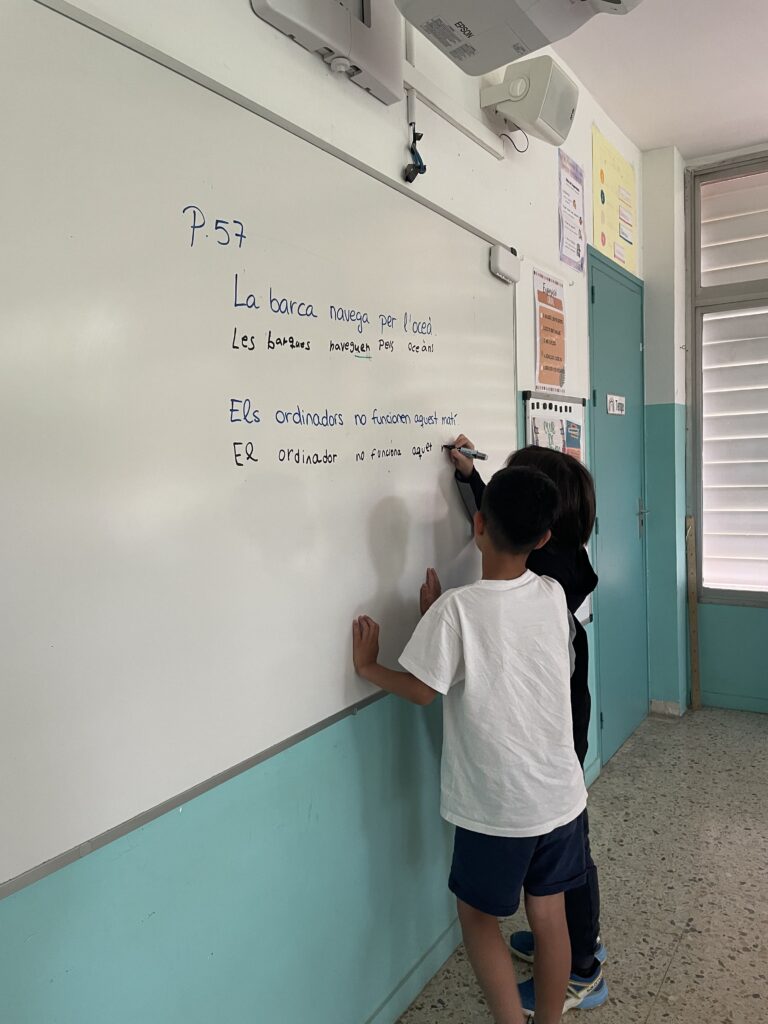 EPSON
P.57
La barca navega per l'oceà.
Les barques naveguen pels oceans
Els ordinadors no funcionen aquest matí.
El ordinador no funciona aquet